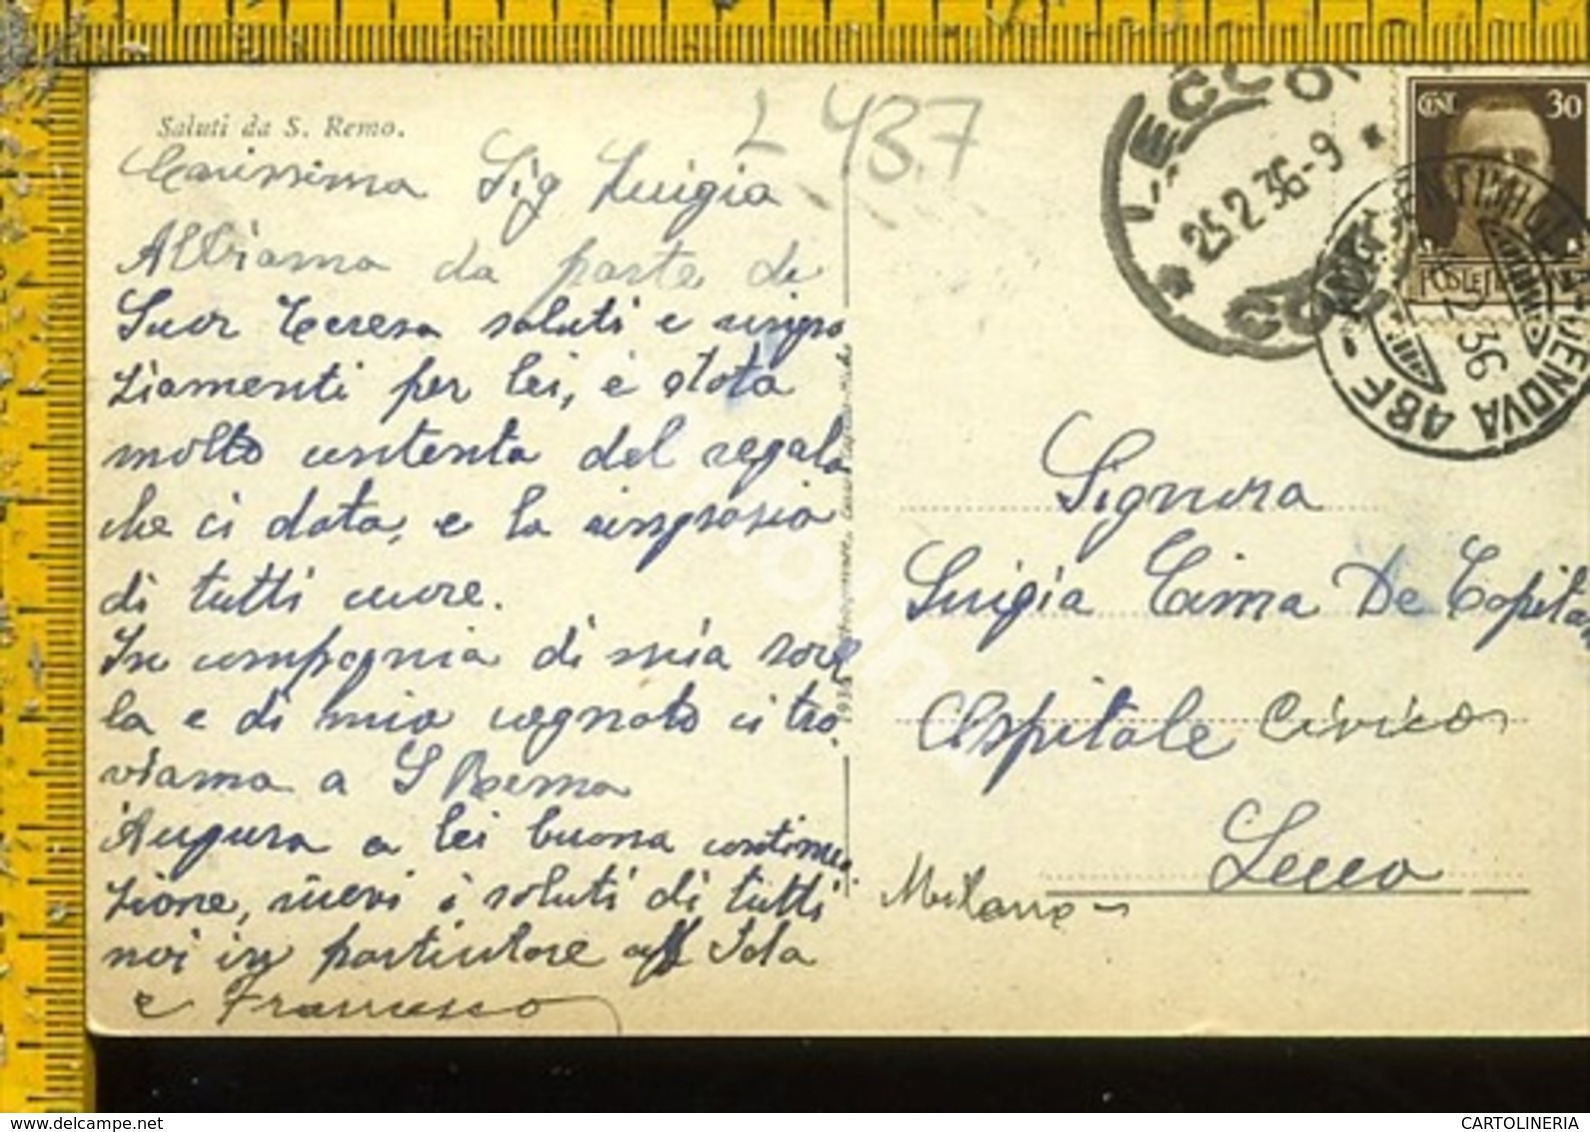 Saluti da S. Remo.
L 437
Carissima Sig Luigia
Abbiamo da parte di
Suor Teresa saluti e ringra
ziamenti per lei, è stata
molto contenta del regalo
che ci data, e la ringrazia
di tutti cuore.
In compagnia di mia sorel
la e di mio cognato ci tro
viamo a S Remo
Auguro a lei buona continua
zione, ricevi i saluti di tutti
noi in particolare aff Iola
e Francesco
LECCO
25.2.36-9
COMO
CENT 30
POSTE ITALIANE
VENTIMIGLIA-GENOVA 48F
2 36
Signora
Luigia Cima De Capita
Ospitale Civico
Lecco
Milano
CARTOLINERIA